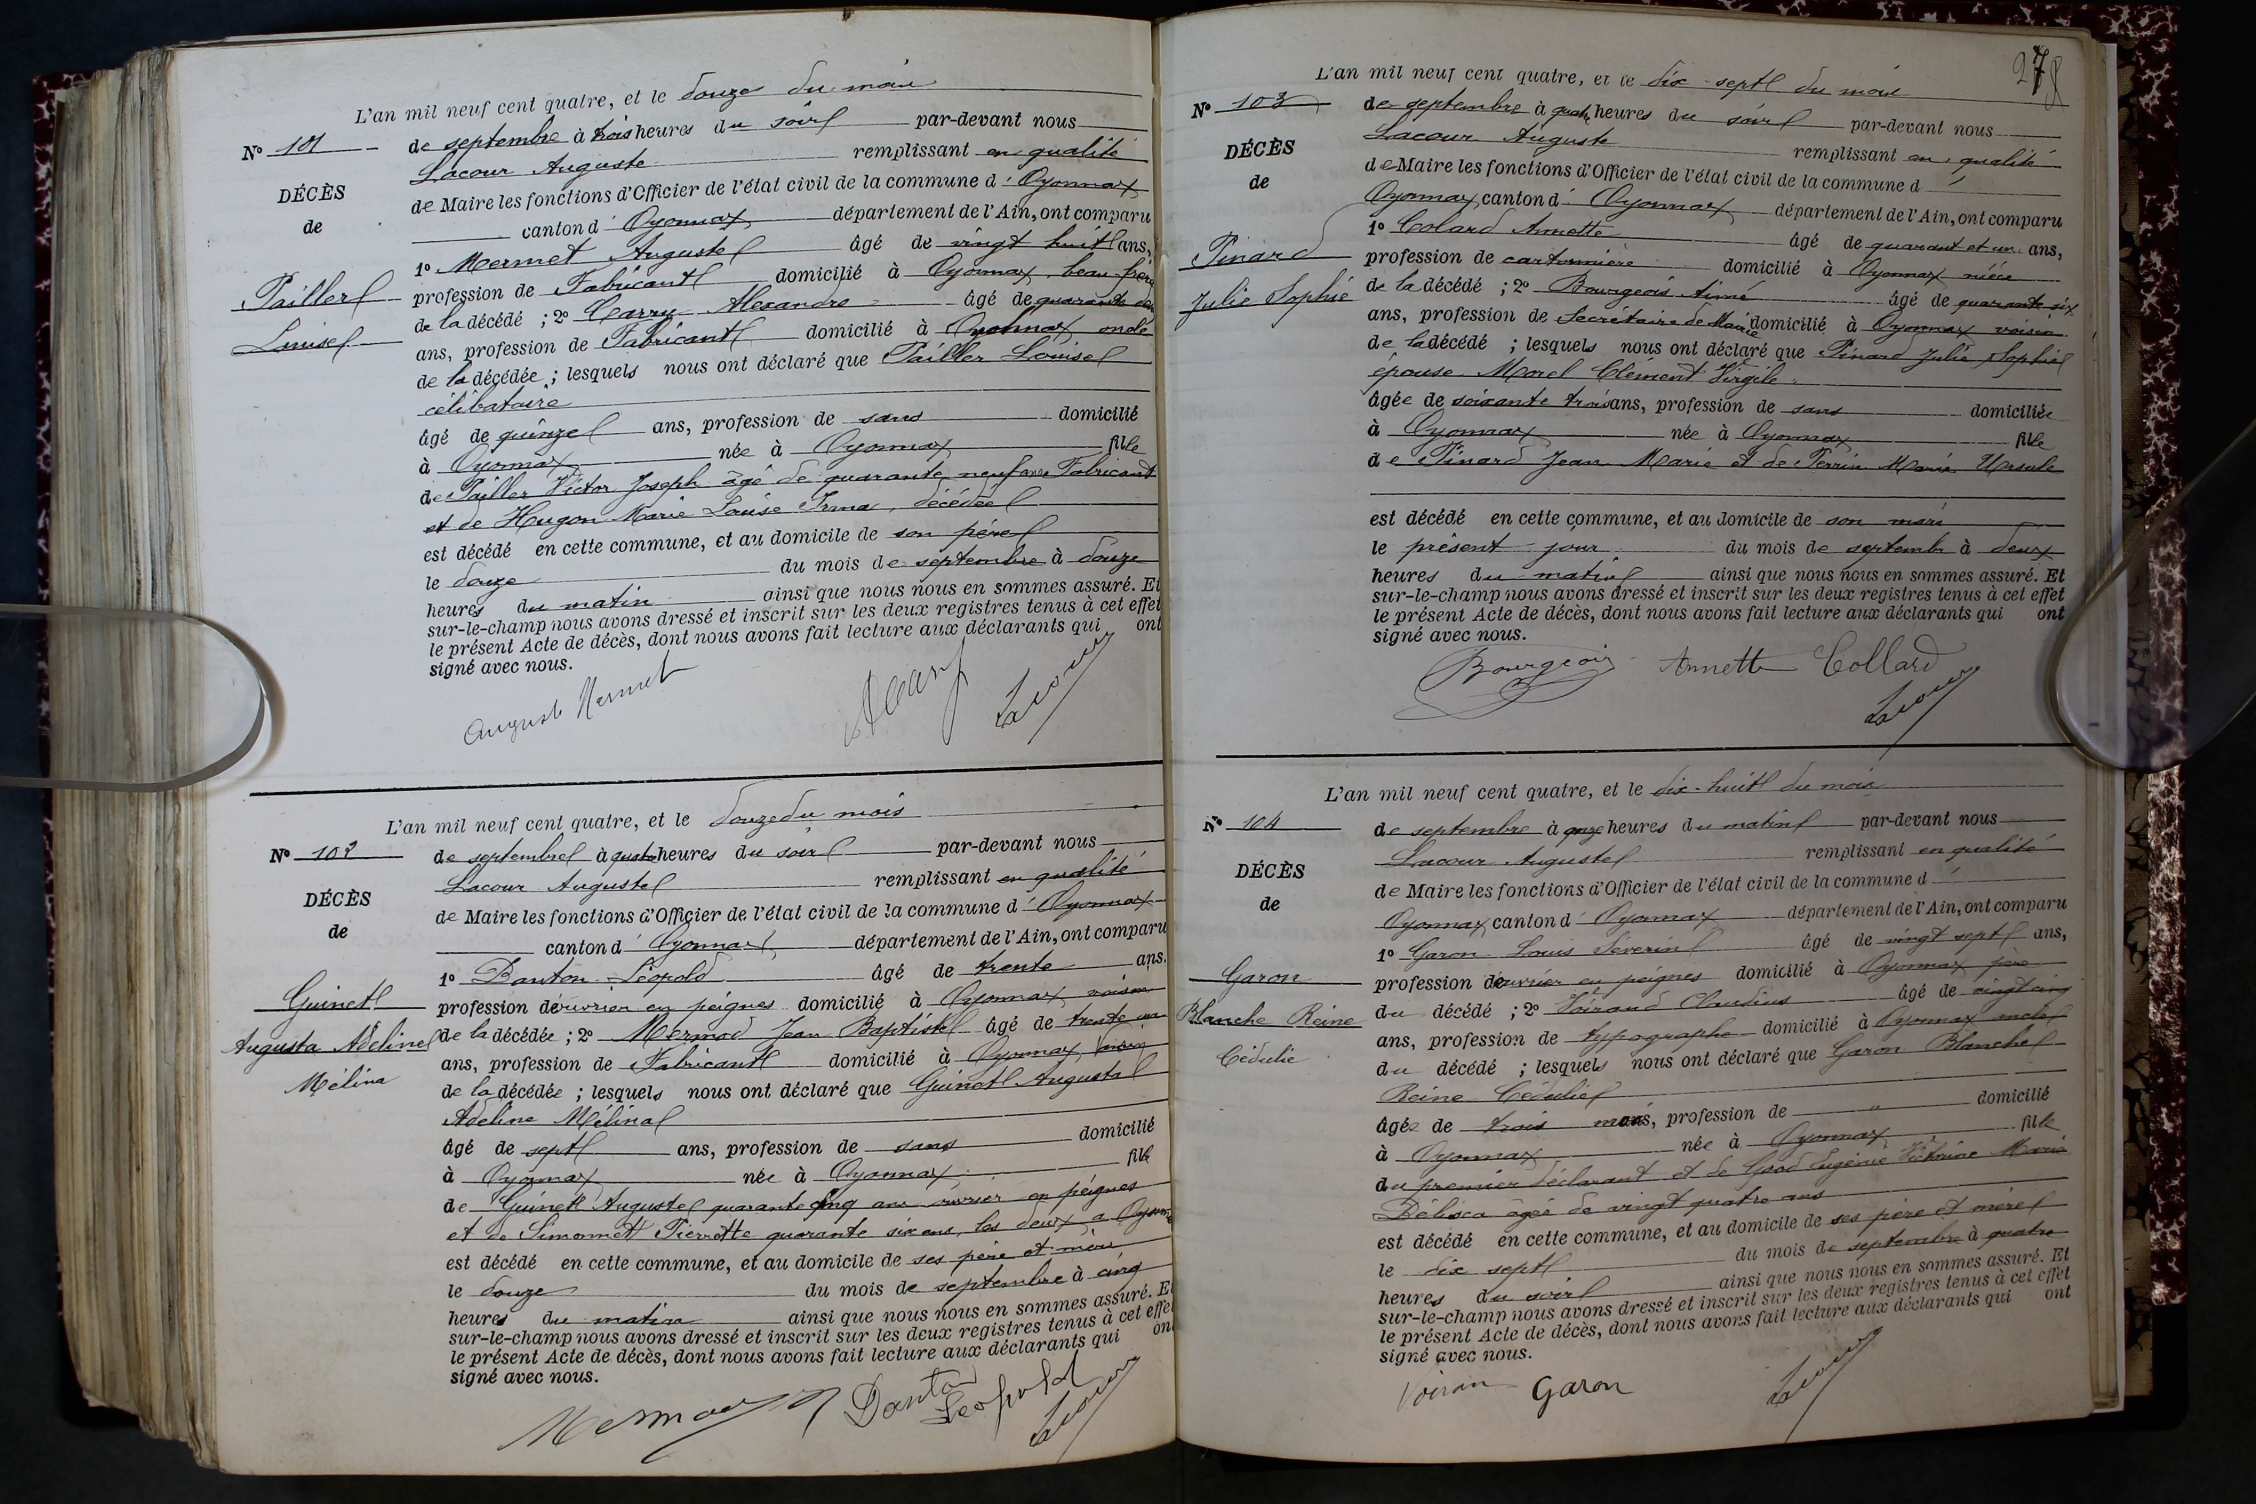 L'an mil neuf cent quatre, et le douze du mois
N° 101
de septembre à trois heures du soir par-devant nous
Lacour Auguste remplissant en qualité
DÉCÈS
de Maire les fonctions d'Officier de l'état civil de la commune d'Oyonnax
de
canton d'Oyonnax département de l'Ain, ont comparu
1° Mermet Auguste âgé de vingt huit ans,
Pailler
profession de Fabricant domicilié à Oyonnax beau-frère
de la décédé ; 2° Carry Alexandre âgé de quarante
Louise
ans, profession de Fabricant domicilié à Oyonnax oncle
de la décédée ; lesquels nous ont déclaré que Pailler Louise
célibataire
âgé de quinze ans, profession de sans domicilié
à Oyonnax née à Oyonnax fille
de Pailler Victor Joseph âgé de quarante neuf ans Fabricant
et de Hugon Marie Louise Irma, décédée
est décédé en cette commune, et au domicile de son père
le douze du mois de septembre à douze
heures du matin ainsi que nous nous en sommes assuré. Et
sur-le-champ nous avons dressé et inscrit sur les deux registres tenus à cet effet
le présent Acte de décès, dont nous avons fait lecture aux déclarants qui ont
signé avec nous.
Auguste Mermet ACarry Lacour
L'an mil neuf cent quatre, et le douze du mois
N° 102
de septembre à quatre heures du soir par-devant nous
Lacour Auguste remplissant en qualité
DÉCÈS
de Maire les fonctions d'Officier de l'état civil de la commune d'Oyonnax
de
canton d'Oyonnax département de l'Ain, ont comparu
1° Danton Léopold âgé de trente ans.
Guinet
profession d'ouvrier en peignes domicilié à Oyonnax voisin
Augusta Adeline
de la décédée ; 2° Mermod Jean Baptiste âgé de trente un
Mélina
ans, profession de Fabricant domicilié à Oyonnax voisin
de la décédée ; lesquels nous ont déclaré que Guinet Augusta
Adeline Mélina
âgé de sept ans, profession de sans domicilié
à Oyonnax née à Oyonnax fille
de Guinet Auguste quarante cinq ans ouvrier en peignes
et de Simonnet Pierrette quarante six ans, les deux à Oyonnax
est décédé en cette commune, et au domicile de ses père et mère
le douze du mois de septembre à cinq
heures du matin ainsi que nous nous en sommes assuré. Et
sur-le-champ nous avons dressé et inscrit sur les deux registres tenus à cet effet
le présent Acte de décès, dont nous avons fait lecture aux déclarants qui ont
signé avec nous.
Mermod Danton Léopold Lacour
278
L'an mil neuf cent quatre, et le dix-sept du mois
N° 103
de septembre à quatre heures du soir par-devant nous
Lacour Auguste remplissant en qualité
DÉCÈS
de Maire les fonctions d'Officier de l'état civil de la commune d'
de
Oyonnax canton d'Oyonnax département de l'Ain, ont comparu
1° Colard Annette âgé de quarant et un ans,
Pinard
profession de cartonnière domicilié à Oyonnax nièce
Julie Sophie
de la décédé ; 2° Bourgeois Aimé âgé de quarante six
ans, profession de Secrétaire de Mairie domicilié à Oyonnax voisin
de la décédé ; lesquels nous ont déclaré que Pinard Julie Sophie
épouse Morel Clément Virgile
âgée de soixante trois ans, profession de sans domiciliée
à Oyonnax née à Oyonnax fille
de Pinard Jean Marie et de Perrin Marie Ursule
est décédé en cette commune, et au domicile de son mari
le présent jour du mois de septembr à deux
heures du matin ainsi que nous nous en sommes assuré. Et
sur-le-champ nous avons dressé et inscrit sur les deux registres tenus à cet effet
le présent Acte de décès, dont nous avons fait lecture aux déclarants qui ont
signé avec nous.
Bourgeois Annette Collard
Lacour
L'an mil neuf cent quatre, et le dix-huit du mois
N° 104
de septembre à onze heures du matin par-devant nous
Lacour Auguste remplissant en qualité
DÉCÈS
de Maire les fonctions d'Officier de l'état civil de la commune d'
de
Oyonnax canton d'Oyonnax département de l'Ain, ont comparu
1° Garon Louis Séverin âgé de vingt sept ans,
Garon
profession d'ouvrier en peignes domicilié à Oyonnax père
Blanche Reine
du décédé ; 2° Voirand Claudius âgé de vingt cinq
ans, profession de typographe domicilié à Oyonnax
Cédulie
du décédé ; lesquels nous ont déclaré que Garon Blanche
Reine Cédulie
âgée de trois mois, profession de " domicilié
à Oyonnax née à Oyonnax fille
du premier déclarant et de Eugénie Maria
âgée de vingt quatre ans
est décédé en cette commune, et au domicile de ses père et mère
le dix sept du mois de septembre à quatre
heures du soir ainsi que nous nous en sommes assuré. Et
sur-le-champ nous avons dressé et inscrit sur les deux registres tenus à cet effet
le présent Acte de décès, dont nous avons fait lecture aux déclarants qui ont
signé avec nous.
Voiran Garon Lacour